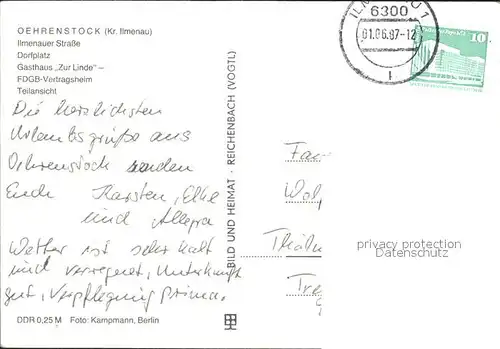 OEHRENSTOCK (Kr. Ilmenau)
Ilmenauer Straße
Dorfplatz
Gasthaus „Zur Linde" –
FDGB-Vertragsheim
Teilansicht
Die herzlichsten
Urlaubsgrüße aus
Oehrenstock senden
Euch Karsten, Elke
und Allegra
Wetter ist sehr kalt
und verregnet, Unterkunft
gut, Verpflegung prima.
DDR 0,25 M Foto: Kampmann, Berlin
BILD UND HEIMAT · REICHENBACH (VOGTL)
6300
01.06.87-12
10
Fam
privacy protection
Datenschutz